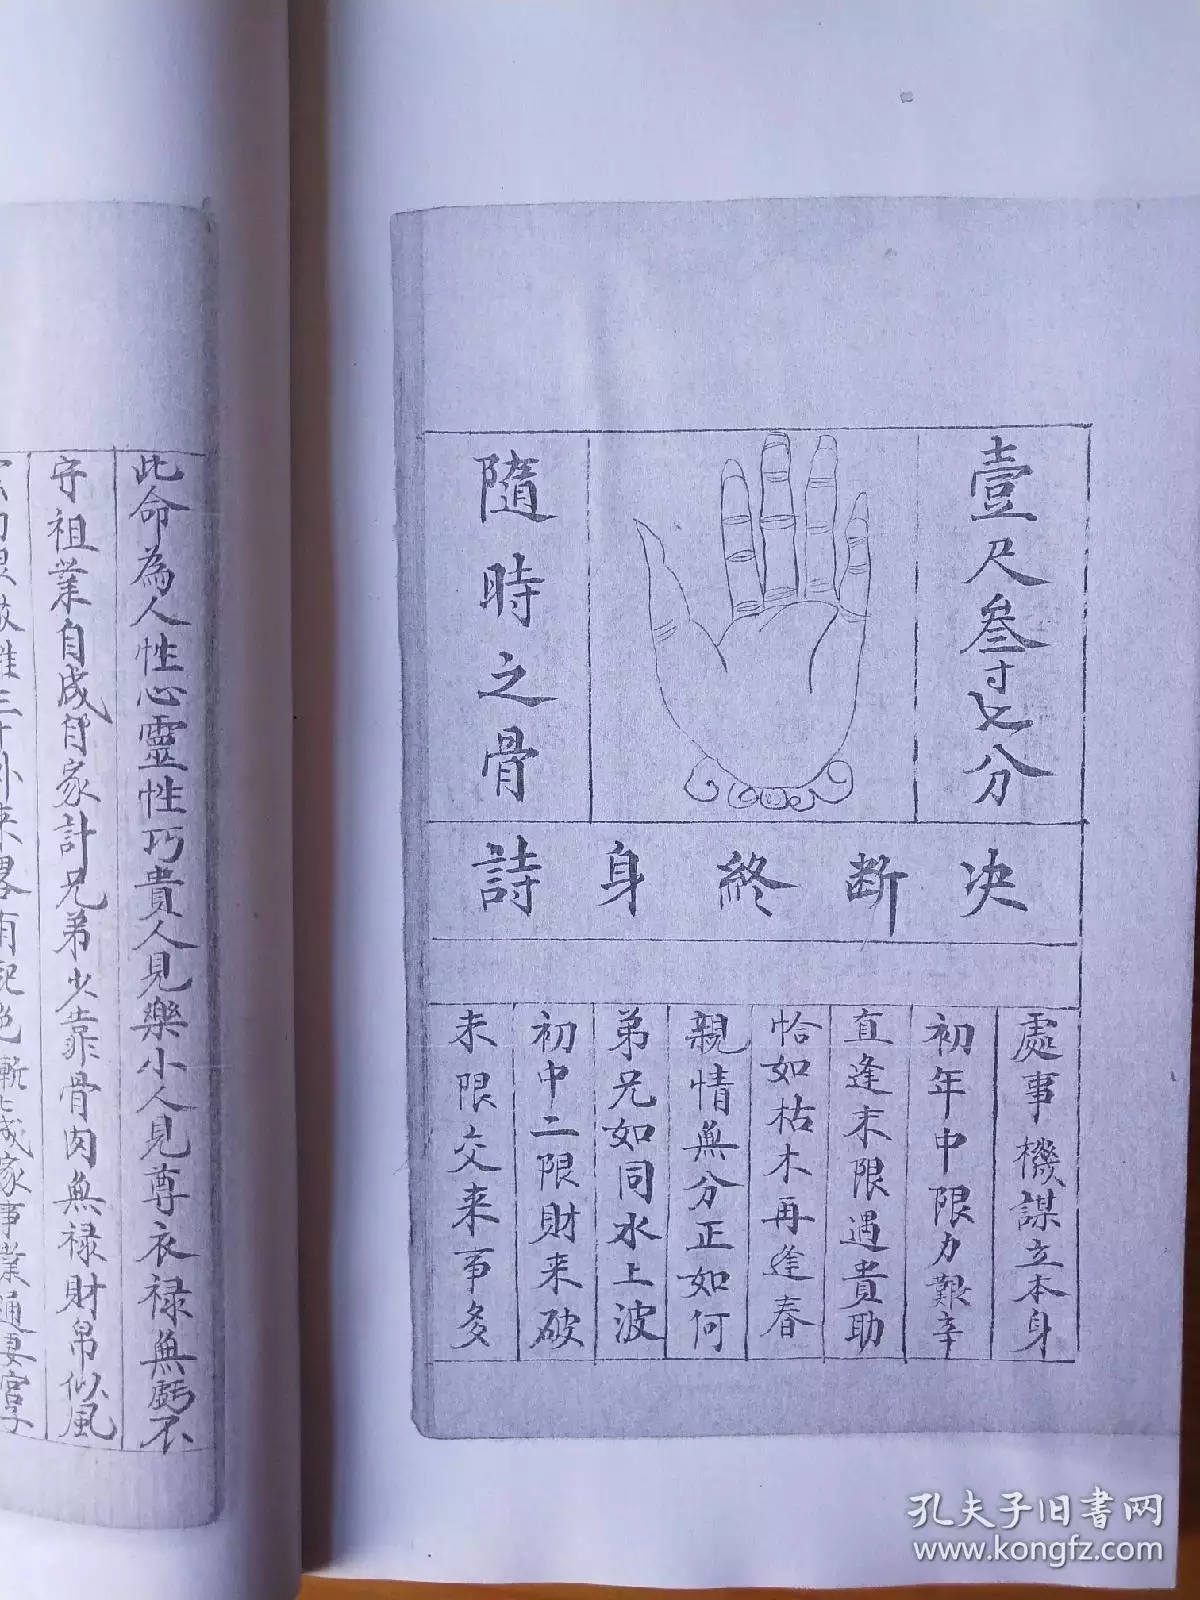 壹尺叁寸七分
隨時之骨
决斷終身詩
處事機謀立本身
初年中限力艱辛
直逢末限遇貴助
恰如枯木再逢春
親情無分正如何
弟兄如同水上波
初中二限財来破
末限交来事多
此命為人性心靈性巧貴人見樂小人見尊衣禄無虧不
守祖業自成自家計兄弟少靠骨肉無禄財帛似風
孔夫子旧書网
www.kongfz.com